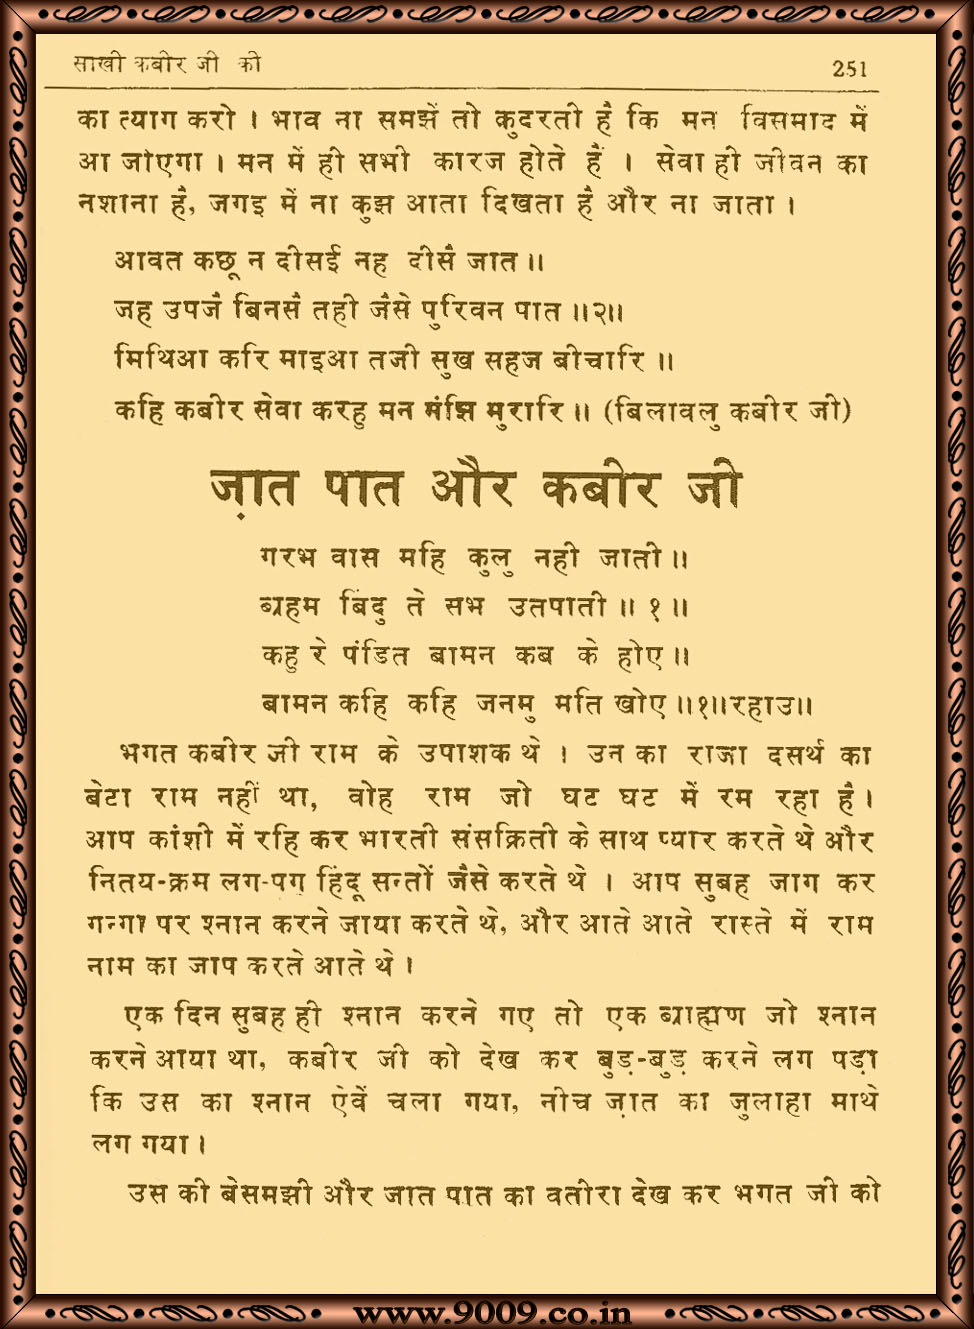 साखी कबीर जी की 251
का त्याग करो । भाव ना समझें तो कुदरती है कि मन विसमाद में
आ जाएगा । मन में ही सभी कारज होते हैं । सेवा ही जीवन का
नशाना है, जगइ में ना कुझ आता दिखता है और ना जाता ।
आवत कछू न दीसई नह दीसै जात ॥
जह उपजै बिनसै तही जैसे पुरिवन पात ॥२॥
मिथिआ करि माइआ तजी सुख सहज बीचारि ॥
कहि कबीर सेवा करहु मन मंझि मुरारि ॥ (बिलावलु कबीर जी)
ज़ात पात और कबीर जी
गरभ वास महि कुलु नही जाती ॥
ब्रहम बिंदु ते सभ उतपाती ॥ १ ॥
कहु रे पंडित बामन कब के होए ॥
बामन कहि कहि जनमु मति खोए ॥१॥रहाउ॥
भगत कबीर जी राम के उपाशक थे । उन का राजा दसर्थ का
बेटा राम नहीं था, वोह राम जो घट घट में रम रहा है ।
आप कांशी में रहि कर भारती संसक्रिती के साथ प्यार करते थे और
नितय-क्रम लग-पग हिंदू सन्तों जैसे करते थे । आप सुबह जाग कर
गन्गा पर श्नान करने जाया करते थे, और आते आते रास्ते में राम
नाम का जाप करते आते थे ।
एक दिन सुबह ही श्नान करने गए तो एक ब्राह्मण जो श्नान
करने आया था, कबीर जी को देख कर बुड़-बुड़ करने लग पड़ा
कि उस का श्नान ऐवें चला गया, नीच ज़ात का जुलाहा माथे
लग गया ।
उस की बेसमझी और जात पात का वतीरा देख कर भगत जी को
www.9009.co.in